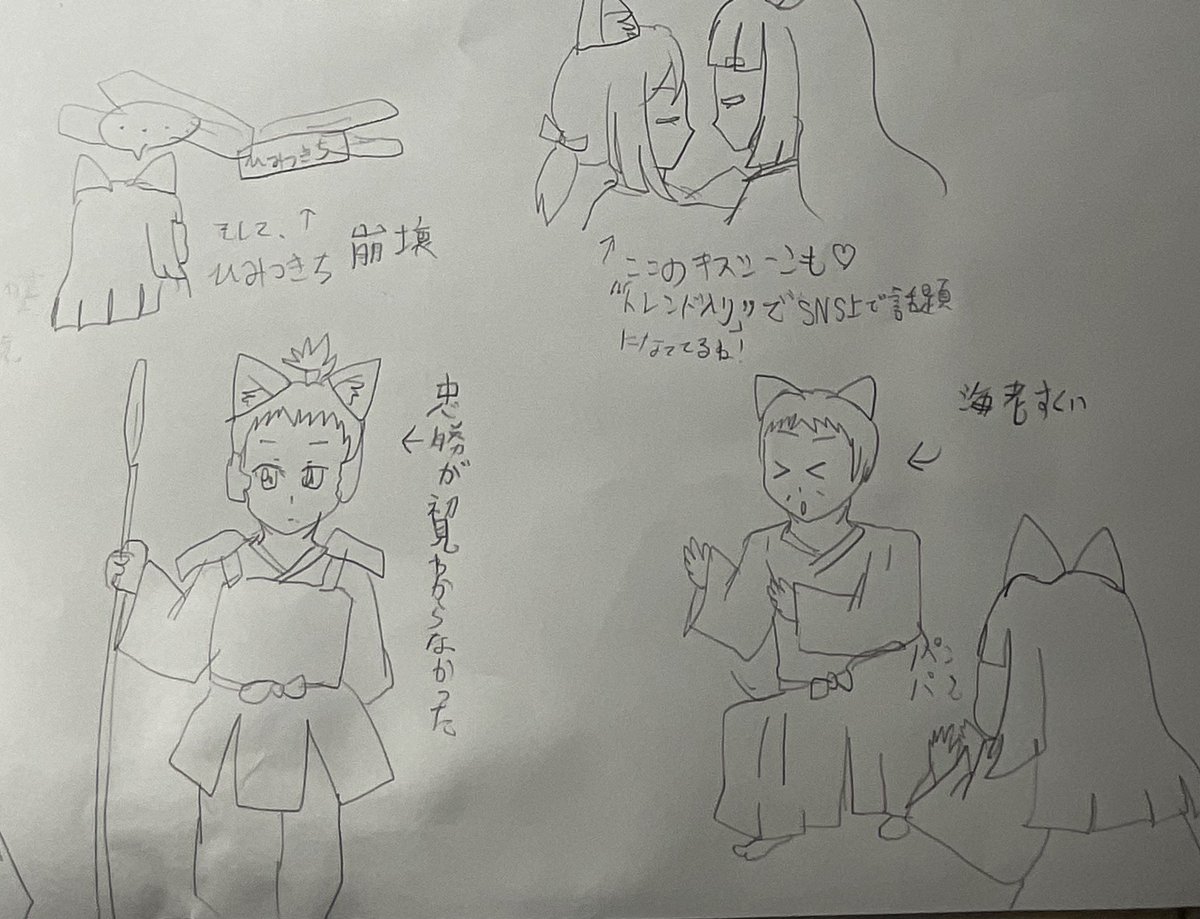 ひみつきち
そして、↑
ひみつきち 崩壊
↑ここのキスシーンも♡
"トレンド入り"でSNS上で話題
になってるね!
←忠勝が初見わからなかった
海老すくい
パン
パン